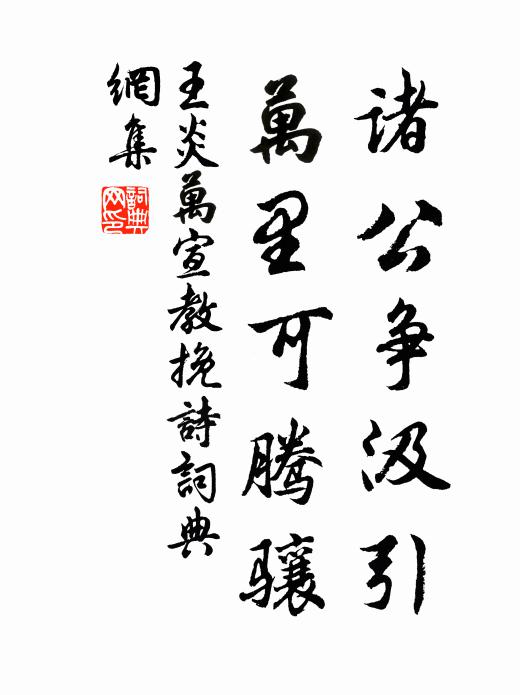 諸公争汲引
萬里可騰骧
王炎萬宣教挽詩詞典
網集
詞典网印